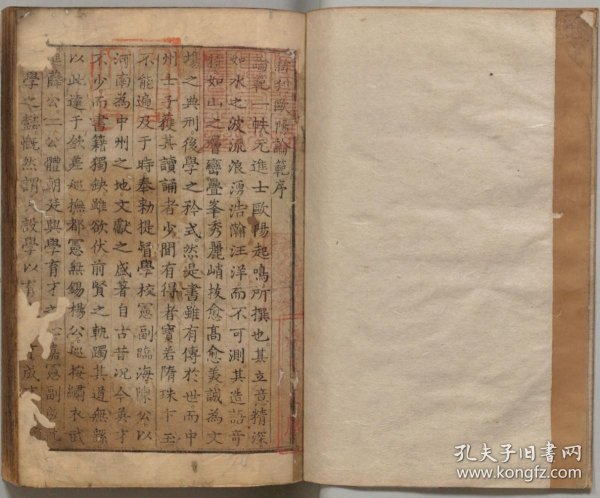 新刊歐陽論範序
論範一帙元進士歐陽起鳴所撰也其立意精深
如水之波流浪湧浩瀚汪洋而不可測其造語奇
特如山之層巒疊峯秀麗峭拔愈高愈美誠為文
場之典刑後學之矜式然是書雖有傳於世而中
州士子獲其讀誦者少間有得者寶若隋珠卞玉
不能遍及于時奉勑提督學校憲副臨海陳公以
河南為中州之地文獻之盛著自古昔况今英才
不少而書籍獨缺雖欲伏前賢之軌躅其道無繇
以此達于欽差巡撫都憲無錫楊公巡按繡衣武
進薛公二公體朝廷興學育才之
憲副
學之懿慨然謂
設學以育
成
孔夫子旧书网
www.kongfz.com